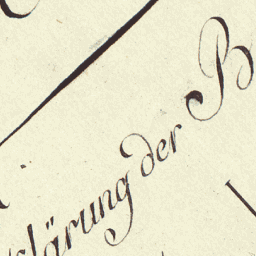 klärung der B